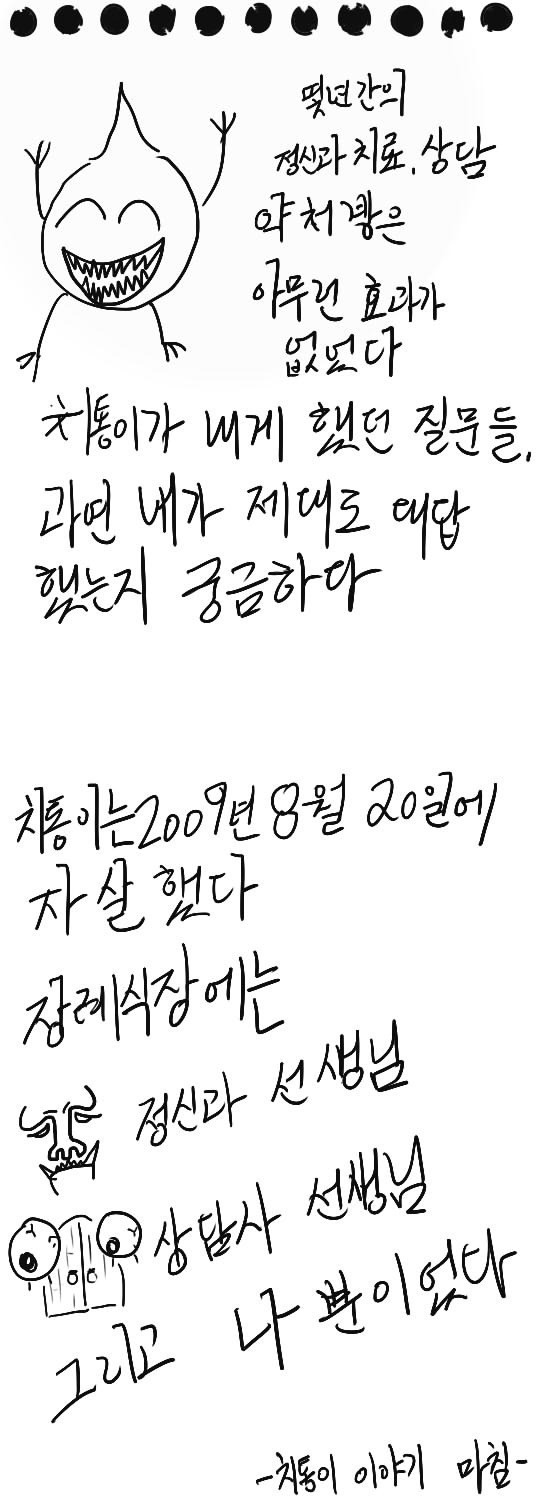 몇년간의
정신과 치료, 상담
약 처방은
아무런 효과가
없었다
치통이가 내게 했던 질문들,
과연 내가 제대로 대답
했는지 궁금하다
치통이는 2009년 8월 20일에
자살했다
장례식장에는
정신과 선생님
상담사 선생님
그리고 나 뿐이었다
-치통이 이야기 마침-